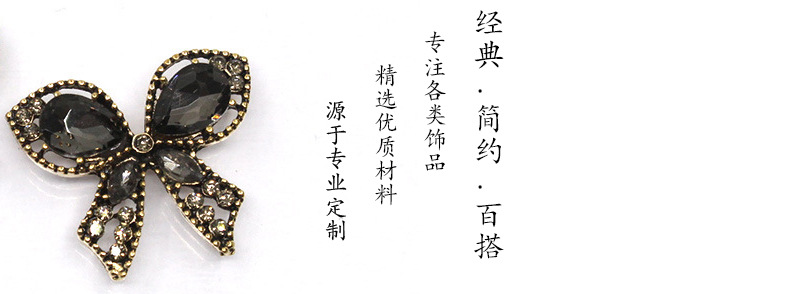 经典.简约.百搭
专注各类饰品
精选优质材料
源于专业定制